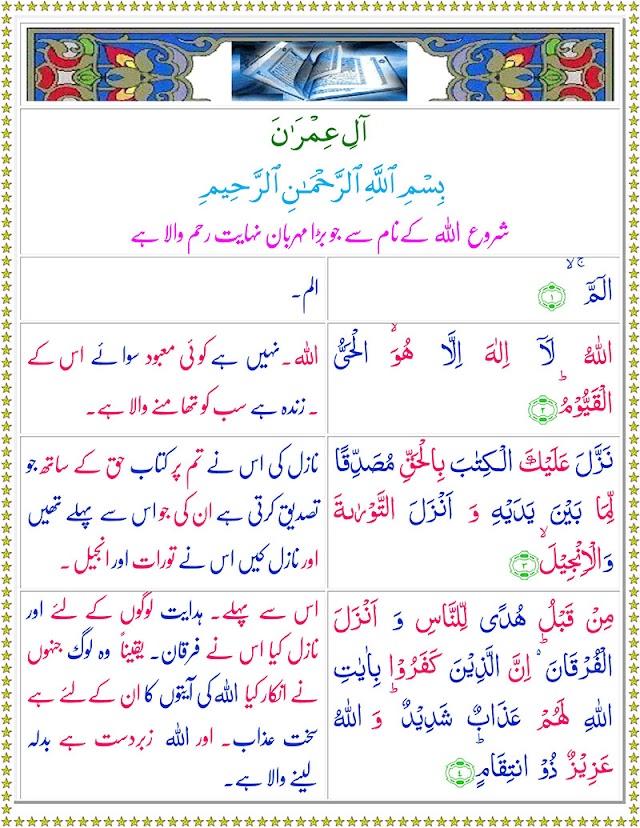 آلِ عِمْرَانَ
بِسْمِ ٱللَّهِ ٱلرَّحْمَـٰنِ ٱلرَّحِيمِ
شروع اللہ کے نام سے جو بڑا مہربان نہایت رحم والا ہے
الٓمّٓ ۙۚ ﴿۱﴾
الم۔
اللّٰهُ لَاۤ اِلٰهَ اِلَّا هُوَ ۙ الْحَیُّ
الْقَیُّوْمُ ؕ ﴿۲﴾
اللہ۔ نہیں ہے کوئی معبود سوائے اس کے
۔ زندہ ہے سب کو تھامنے والا ہے۔
نَزَّلَ عَلَیْكَ الْكِتٰبَ بِالْحَقِّ مُصَدِّقًا
لِّمَا بَیْنَ یَدَیْهِ وَ اَنْزَلَ التَّوْرٰىةَ
وَالْاِنْجِیْلَ ۙ ﴿۳﴾
نازل کی اس نے تم پر کتاب حق کے ساتھ جو
تصدیق کرتی ہے ان کی جو اس سے پہلے تھیں
اور نازل کیں اس نے تورات اور انجیل ۔
مِنْ قَبْلُ هُدًی لِّلنَّاسِ وَ اَنْزَلَ
الْفُرْقَانَ ۬ؕ اِنَّ الَّذِیْنَ كَفَرُوْا بِاٰیٰتِ
اللّٰهِ لَهُمْ عَذَابٌ شَدِیْدٌ ؕ وَ اللّٰهُ
عَزِیْزٌ ذُو انْتِقَامٍ ؕ ﴿۴﴾
اس سے پہلے۔ ہدایت لوگوں کے لئے اور
نازل کیا اس نے فرقان۔ یقیناً وہ لوگ جنہوں
نے انکار کیا اللہ کی آیتوں کا ان کے لئے ہے
سخت عذاب۔ اور اللہ زبردست ہے بدلہ
لینے والا ہے۔